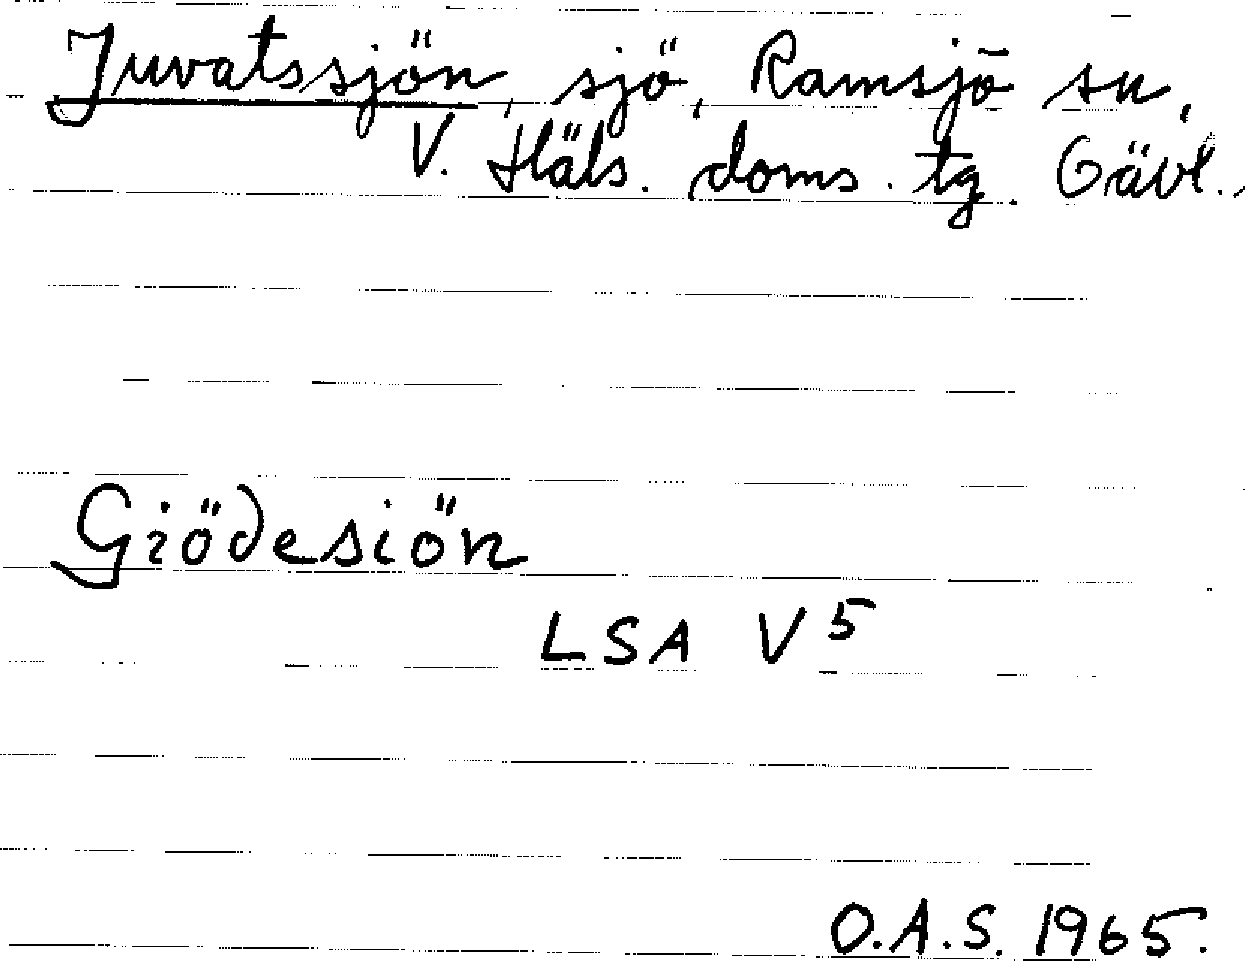 Juvatssjön, sjö, Ramsjö sn,
V. Häls. doms. tg. Gävl.,
Giödesiön
LSA V 5
O.A.S. 1965.